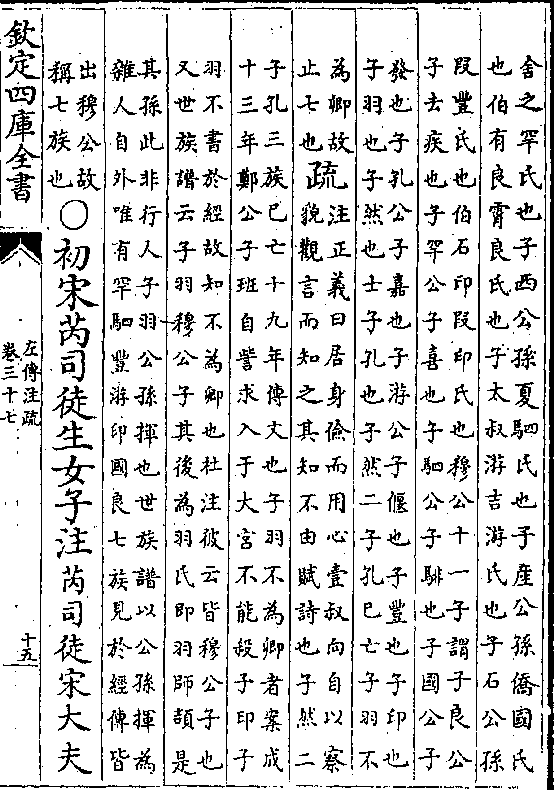 舍之罕氏也子西公孫夏駟氏也子産公孫僑國氏
也伯有良霄良氏也子太叔游吉游氏也子石公孫
段豐氏也伯石印段印氏也穆公十一子謂子良公
子去疾也子罕公子喜也子駟公子騑也子國公子
發也子孔公子嘉也子游公子偃也子豐也子印也
子羽也子然也士子孔也子然二子孔巳亡子羽不
為卿故
止七也
疏
注正義曰居身儉而用心壹叔向自以察
貌觀言而知之其知不由賦詩也子然二
子孔三族巳亡十九年傳文也子羽不為卿者案成
十三年鄭公子班自訾求入于大宫不能殺子印子
羽不書於經故知不為卿也杜注彼云皆穆公子也
又世族譜云子羽穆公子其後為羽氏即羽師頡是
其孫此非行人子羽公孫揮也世族譜以公孫揮為
雜人自外唯有罕駟豐游印國良七族見於經傳皆
出穆公故
稱七族也
○初宋芮司徒生女子注芮司徒宋大夫
欽定四庫全書
左傳注疏
卷三十七
十五